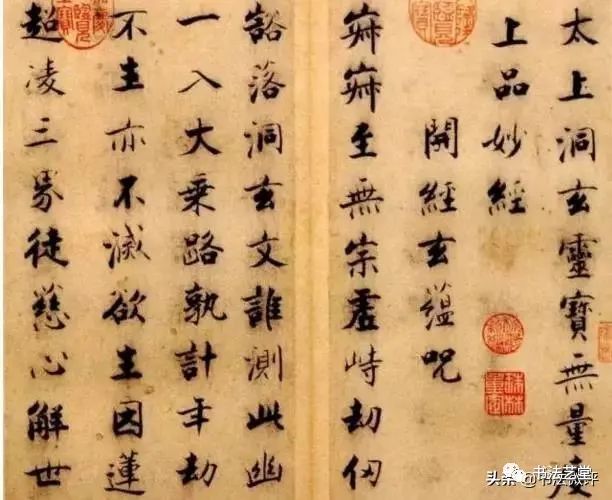 太上洞玄靈寶無量度
上品妙經
開經玄蘊呪
寂寂至無宗虛峙劫仞
豁落洞玄文誰測此幽
一入大乘路孰計年劫
不生亦不滅欲生因蓮
超凌三界徒慈心解世
书法艺堂
头条 @书法微评